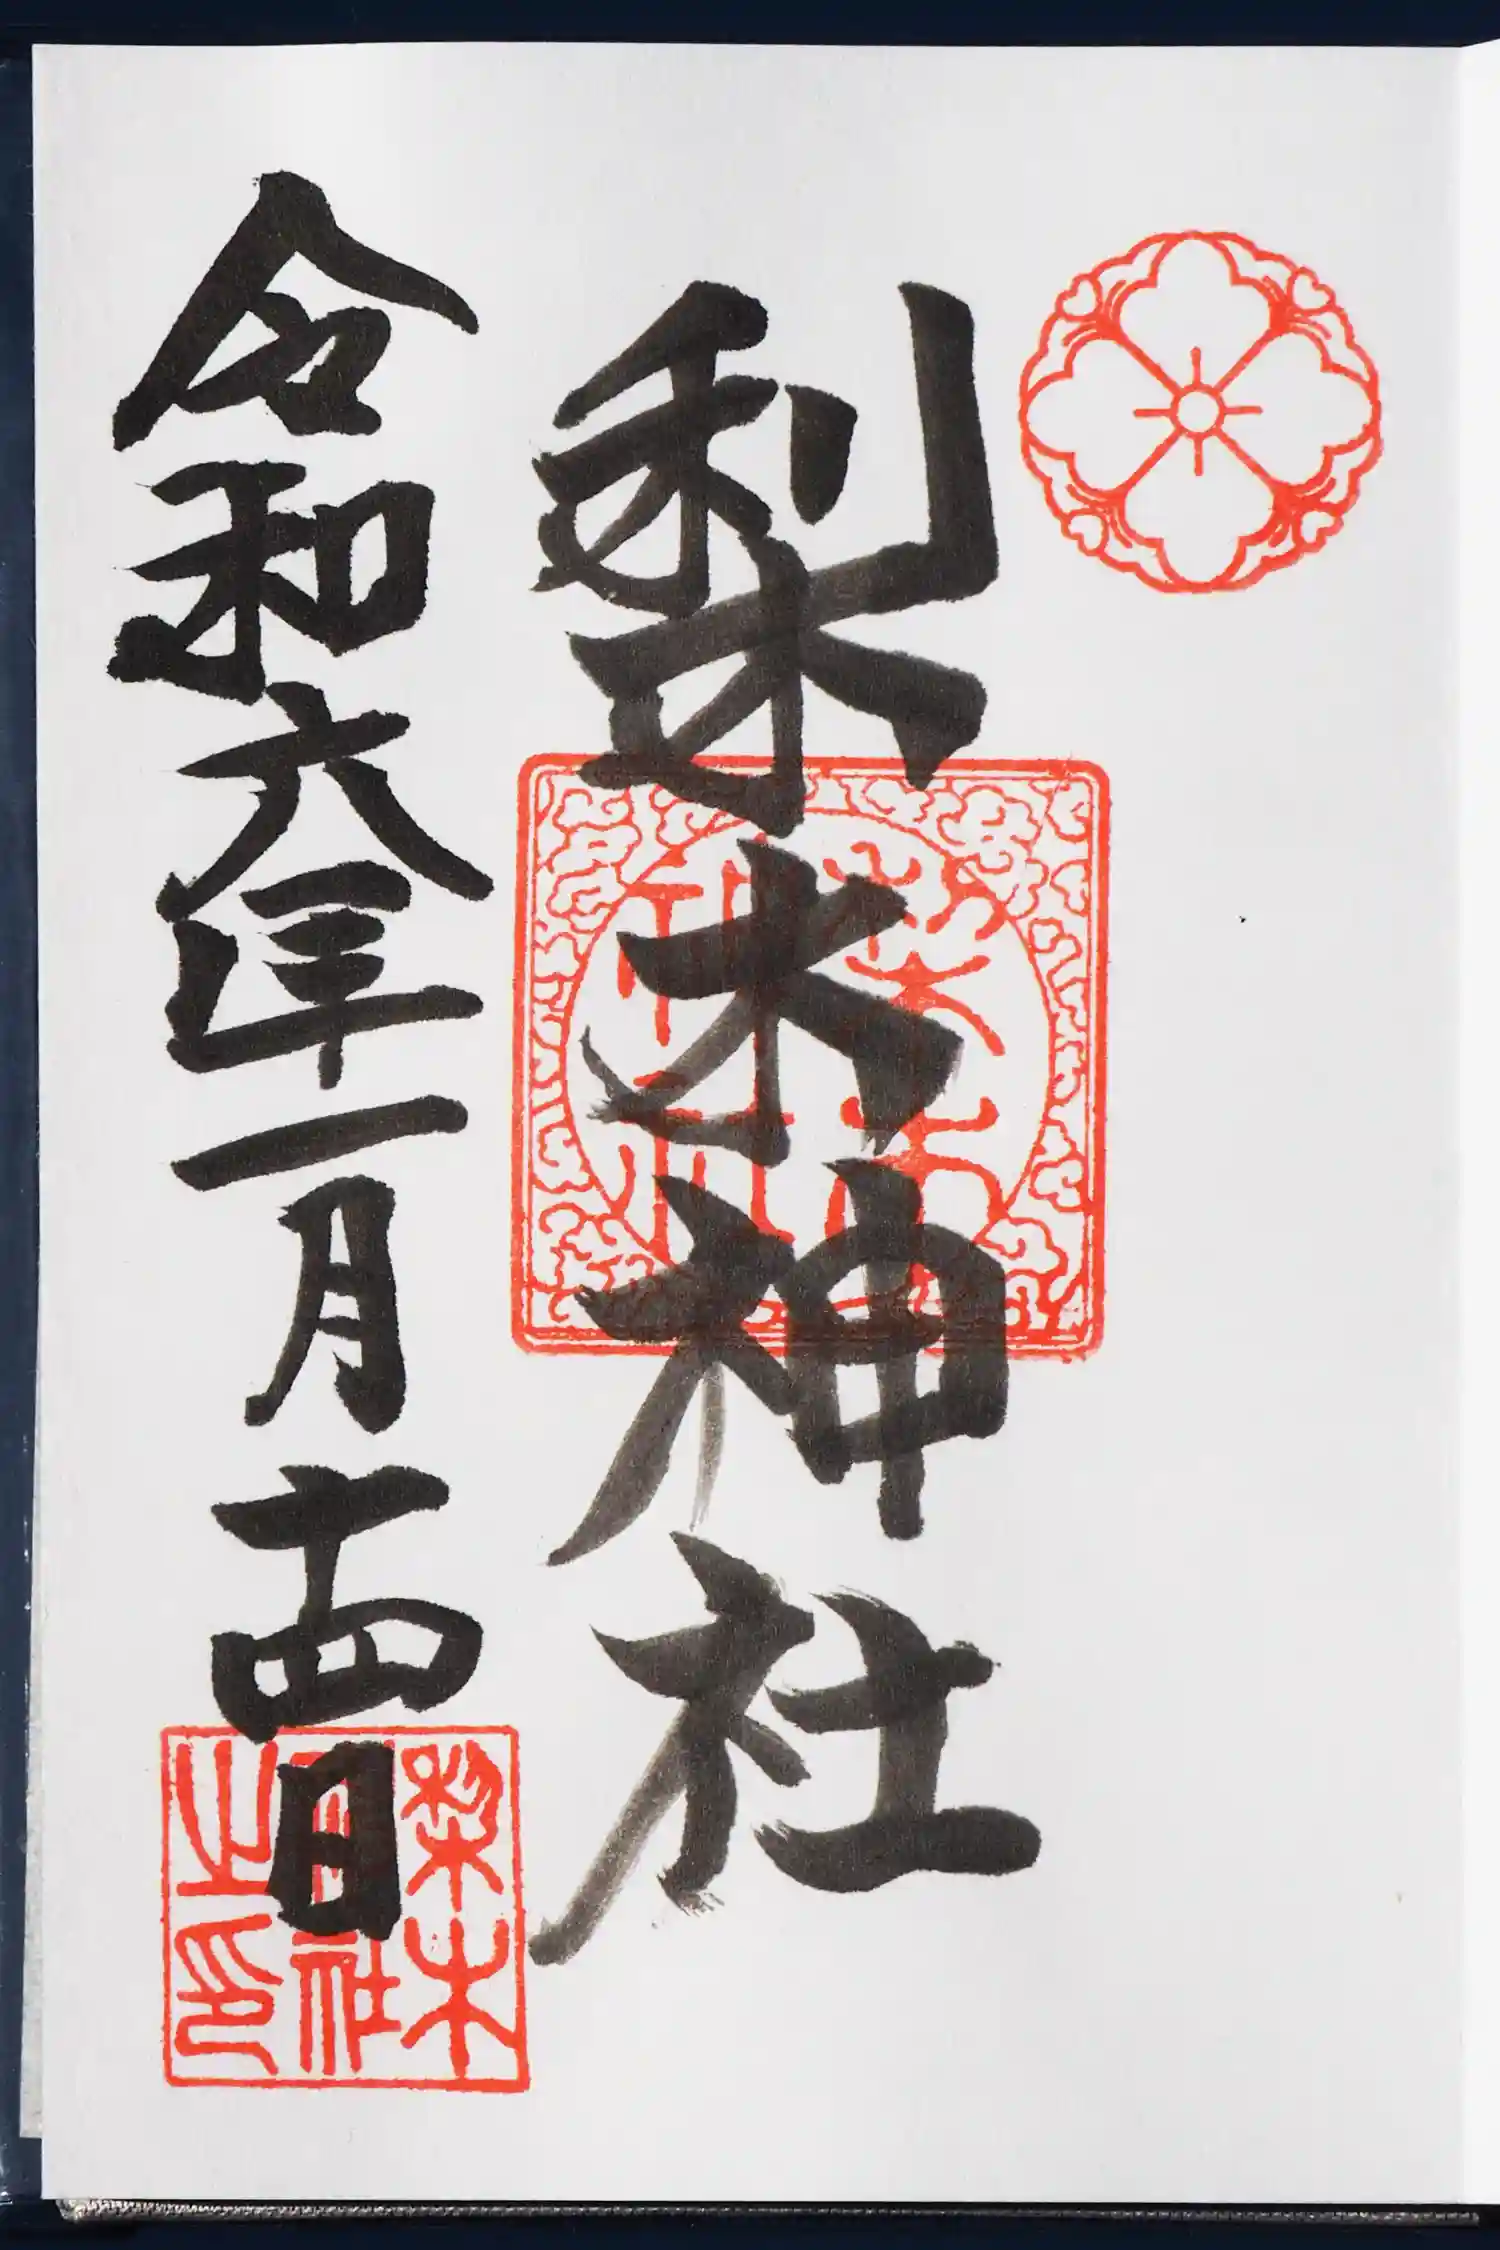 梨木神社
令和六年一月十四日
梨木
神社
之印